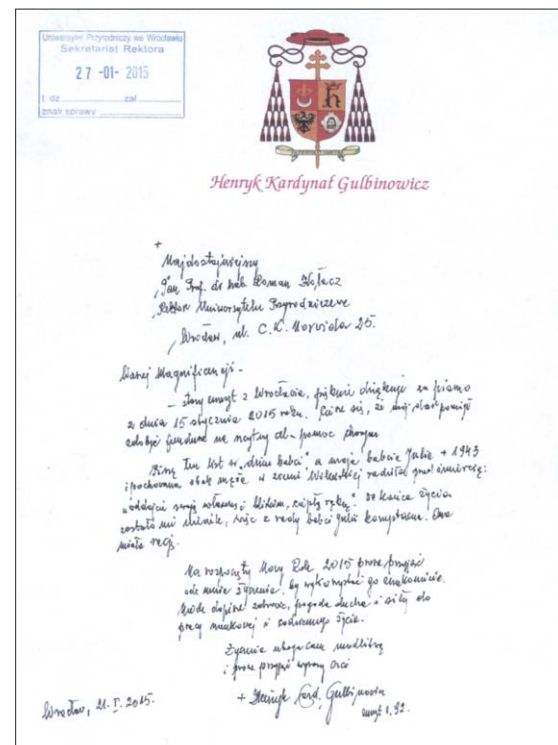 Uniwersytet Przyrodniczy we Wrocławiu
Sekretariat Rektora
27 -01- 2015
l. dz. zał.
znak sprawy
Henryk Kardynał Gulbinowicz
+
Najdostojniejszy
Pan Prof. dr hab. Roman Kołacz
Rektor Uniwersytetu Przyrodniczego
Wrocław, ul. C. K. Norwida 25.
Waszej Magnificencji –
– stary emeryt z Wrocławia, pięknie dziękuje za pismo
z dnia 15 stycznia 2015 roku. Cieszę się, że mój
zdobyć fundusz na pomoc chorym
Piszę ten list w "dniu babci", a moja babcia Julia + 1943
i pochowana obok męża w ziemi Wileńskiej radziła przed śmiercią:
oddaj swoją własność bliźnim, "ciepłą ręką". Do końca życia
zostało mi niewiele, więc z rady babci Julii korzystam. Ona
miała rację.
Na rozpoczęty Nowy Rok 2015 proszę przyjąć
ode mnie życzenia, by wykorzystać go znakomicie.
Niech dopisze zdrowie, pogoda ducha i siły do
pracy naukowej i rodzinnego życia.
Życzenia ubogacam modlitwą
i proszę przyjąć wyrazy czci
+ Henryk Card. Gulbinowicz
Wrocław, 21. I. 2015.